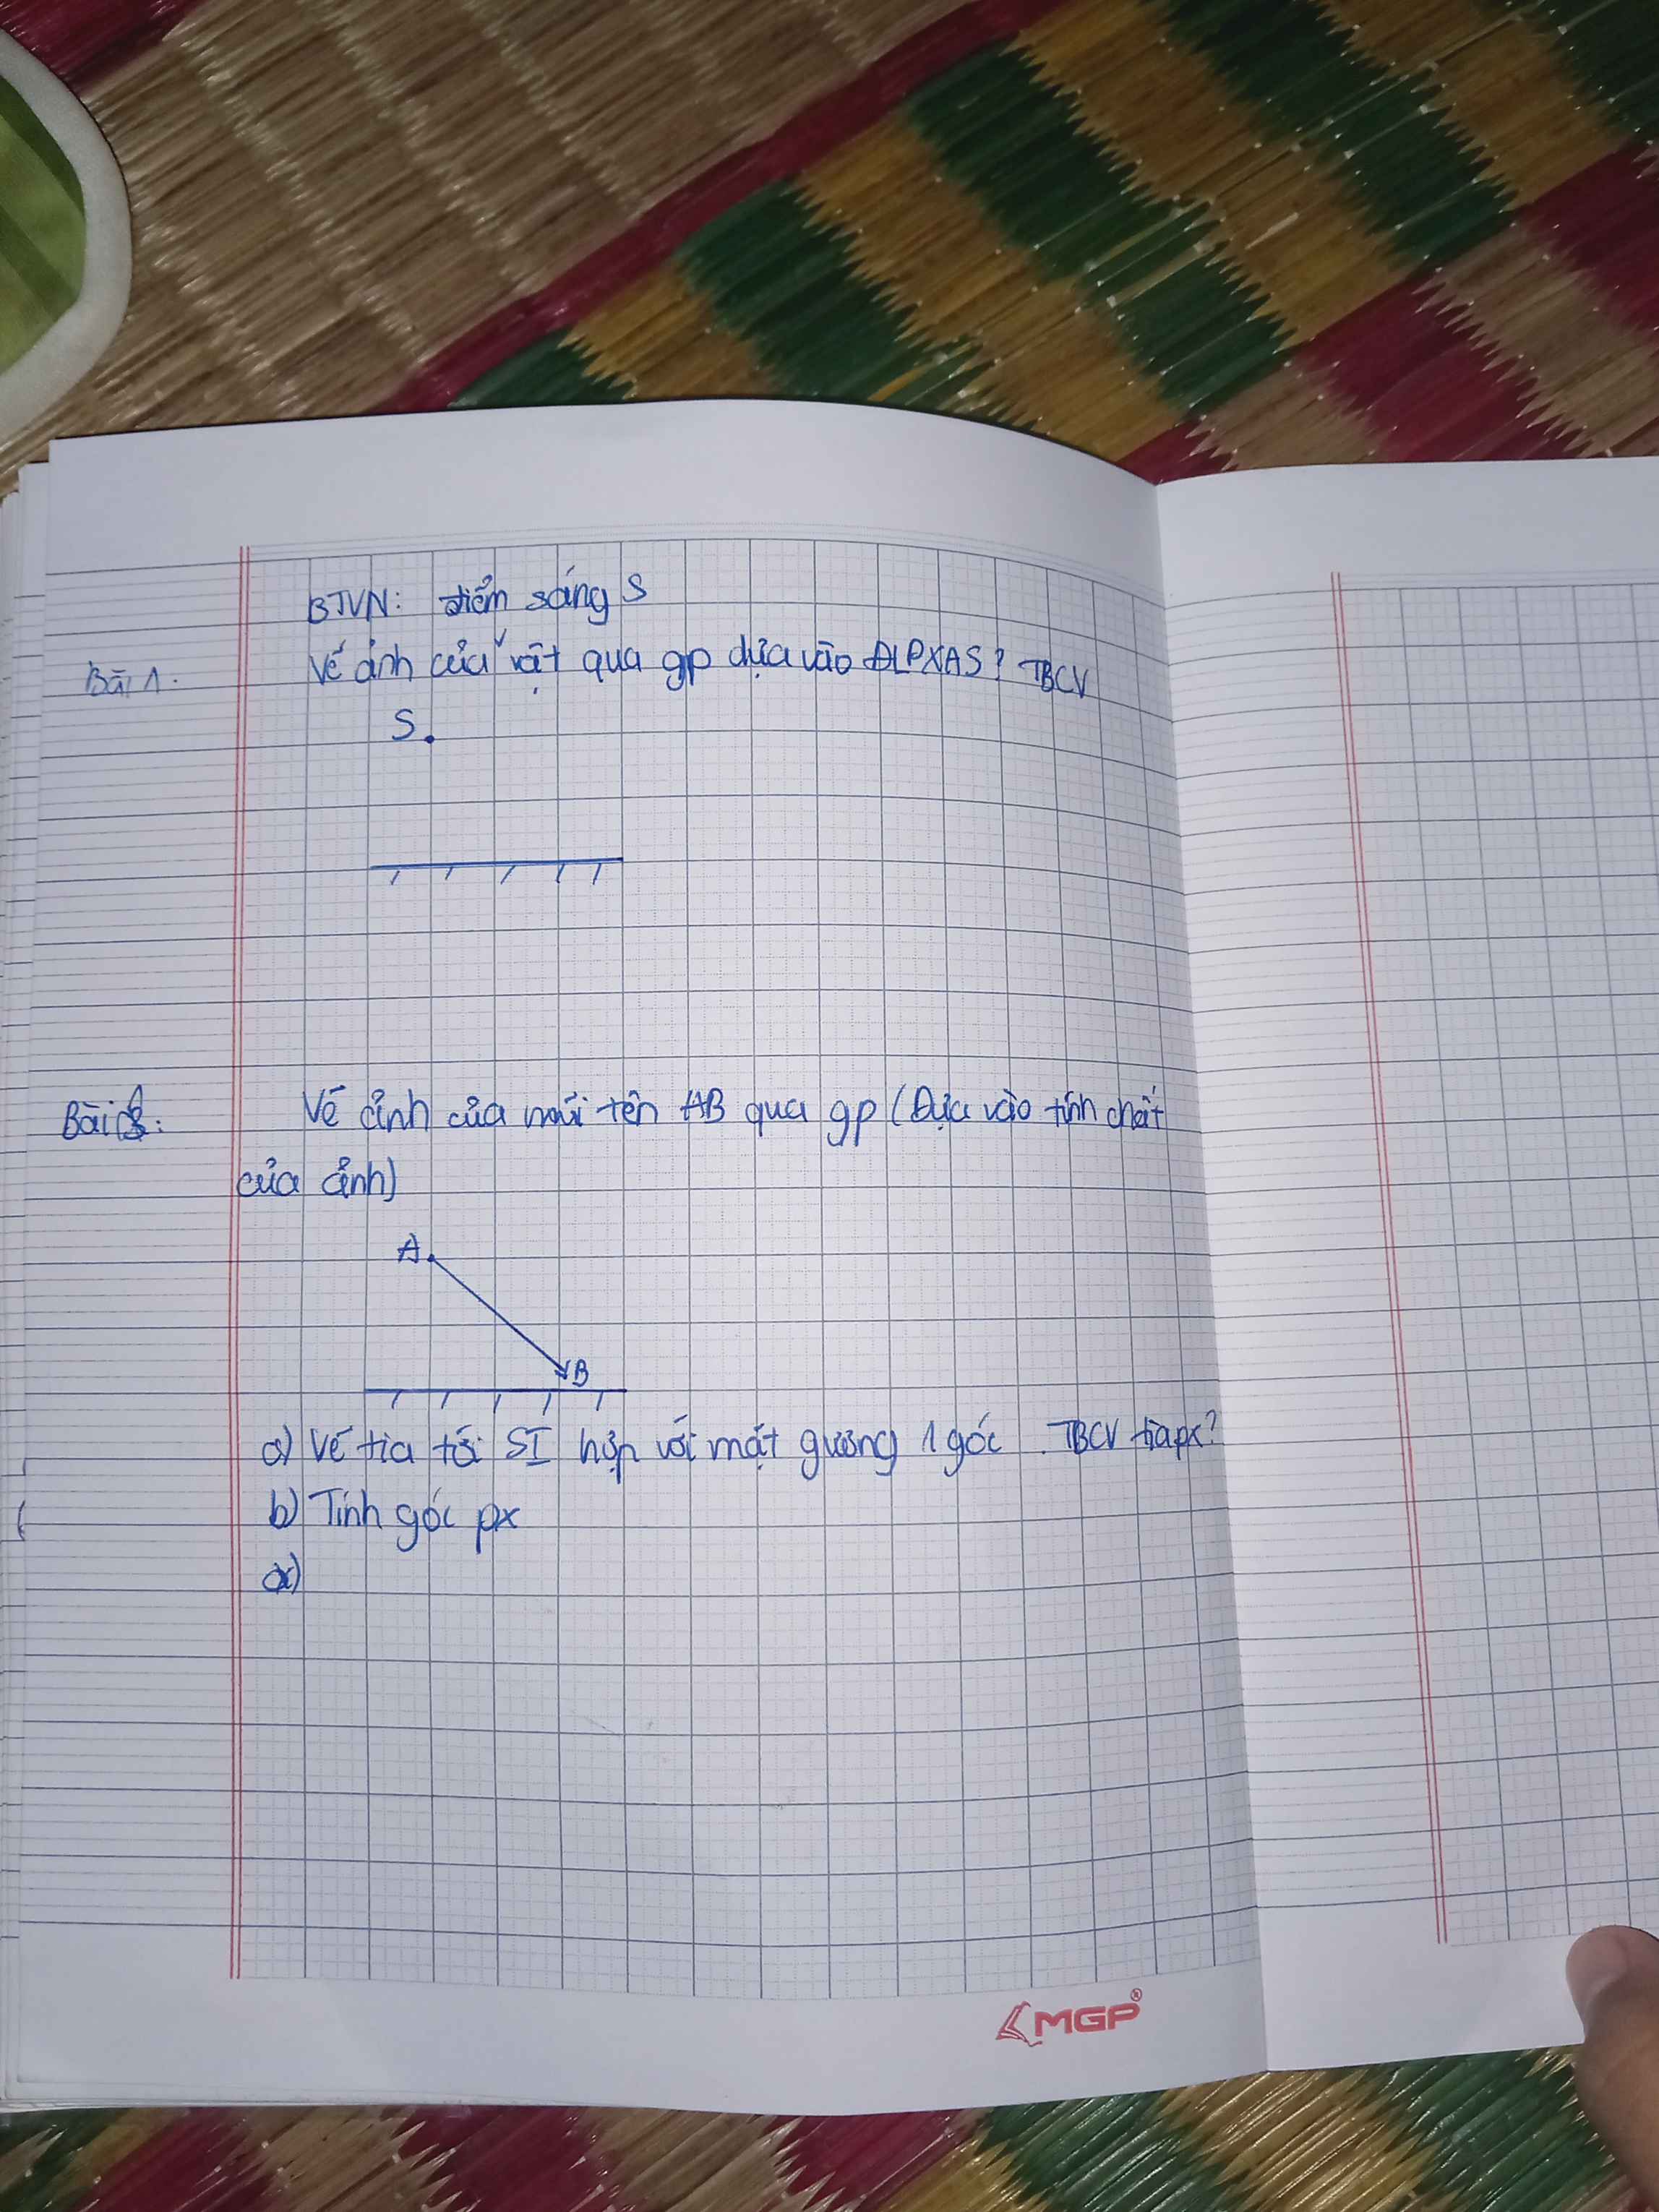 BTVN: điểm sáng S
Bài 1. Vẽ ảnh của vật qua gp dựa vào ĐLPXAS? TBCV
S.
Bài Vẽ ảnh của mũi tên AB qua gp (Dựa vào tính chất
của ảnh)
A.
B
a) Vẽ tia tới SI hợp với mặt gương 1 góc . TBCV tia px?
b) Tính góc px
a)
MGP®